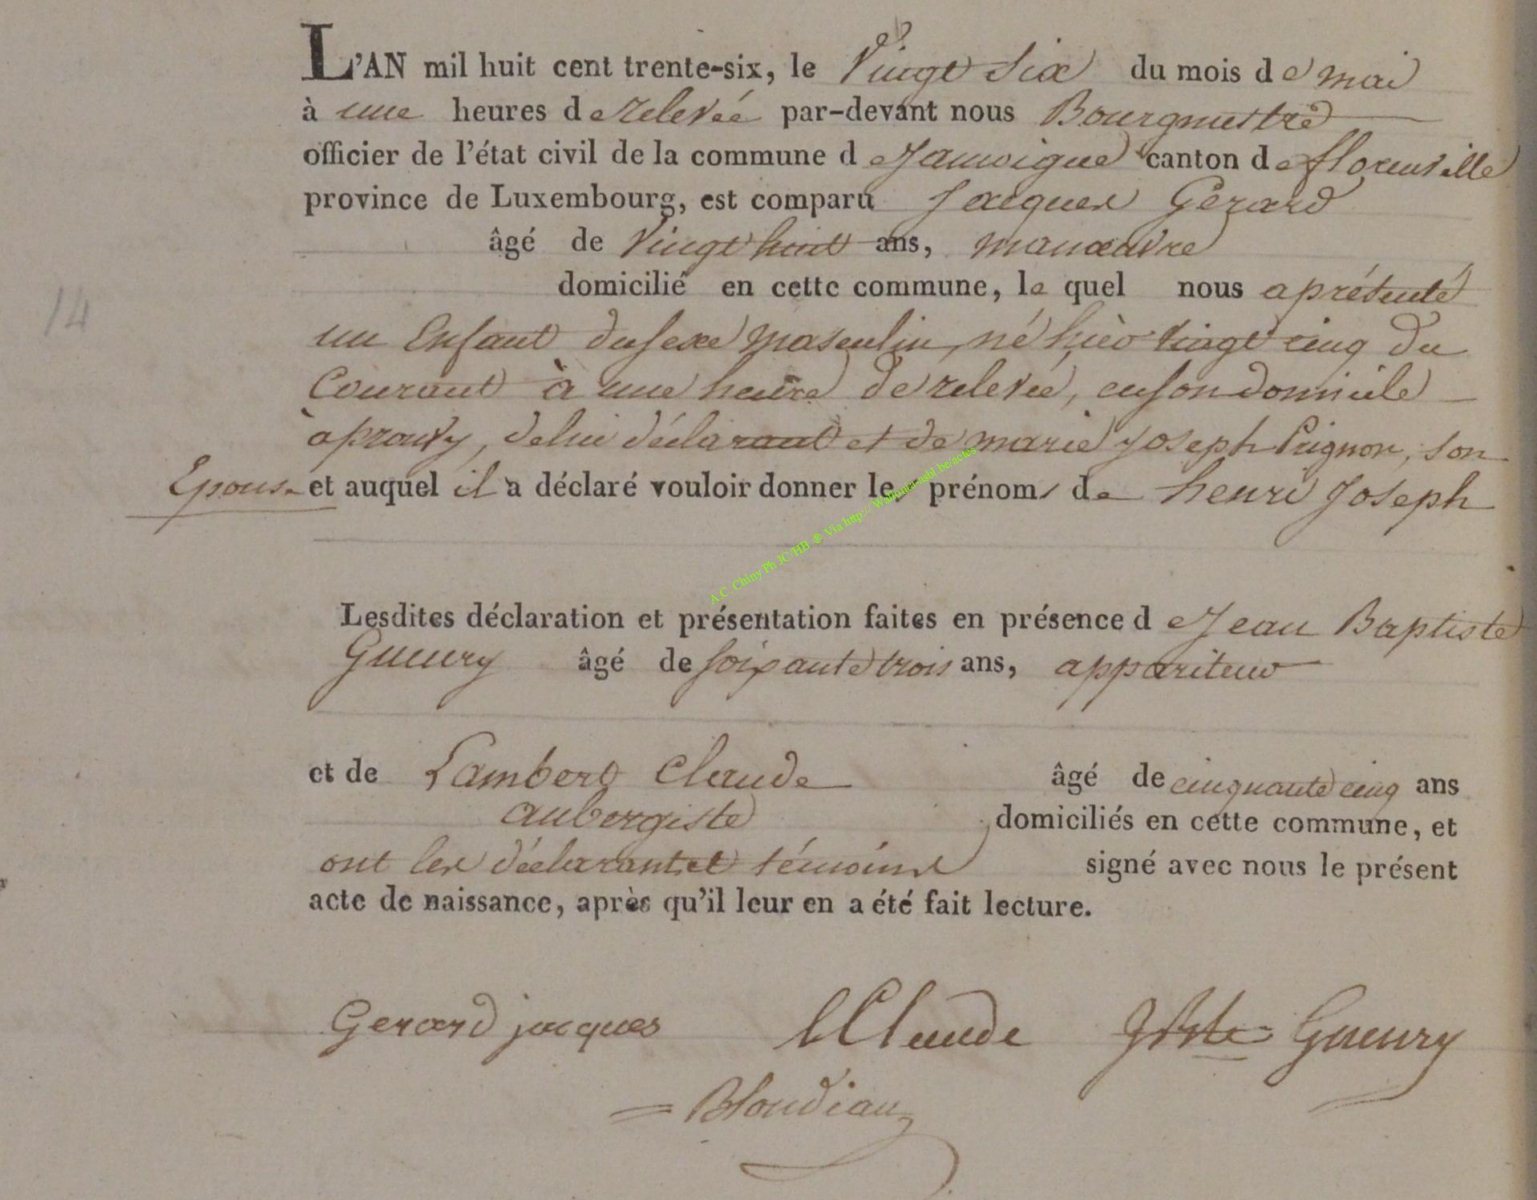 L'AN mil huit cent trente-six, le Vingt Six du mois de mai
à une heures de relevée par-devant nous Bourgmestre
officier de l'état civil de la commune de Jamoigne canton de florenville
province de Luxembourg, est comparu Jacques Gerard
âgé de Vingt huit ans, manœuvre
domicilié en cette commune, le quel nous a présenté
14
un Enfant du sexe masculin, né hier vingt cinq du
Courant à une heure de relevée, en son domicile
à prouvy, de lui déclarant et de marie joseph Pignon, son
Epouse et auquel il a déclaré vouloir donner les prénoms de henri Joseph
A.C. Chiny Ph JC/HB ® Via http://
Lesdites déclaration et présentation faites en présence de Jean Baptiste
Gueury âgé de soixante trois ans, appariteur
et de Lambert Claude âgé de cinquante cinq ans
aubergiste domiciliés en cette commune, et
ont les déclarant et témoins signé avec nous le présent
acte de naissance, après qu'il leur en a été fait lecture.
Gerard jacques LClaude JBte Gueury